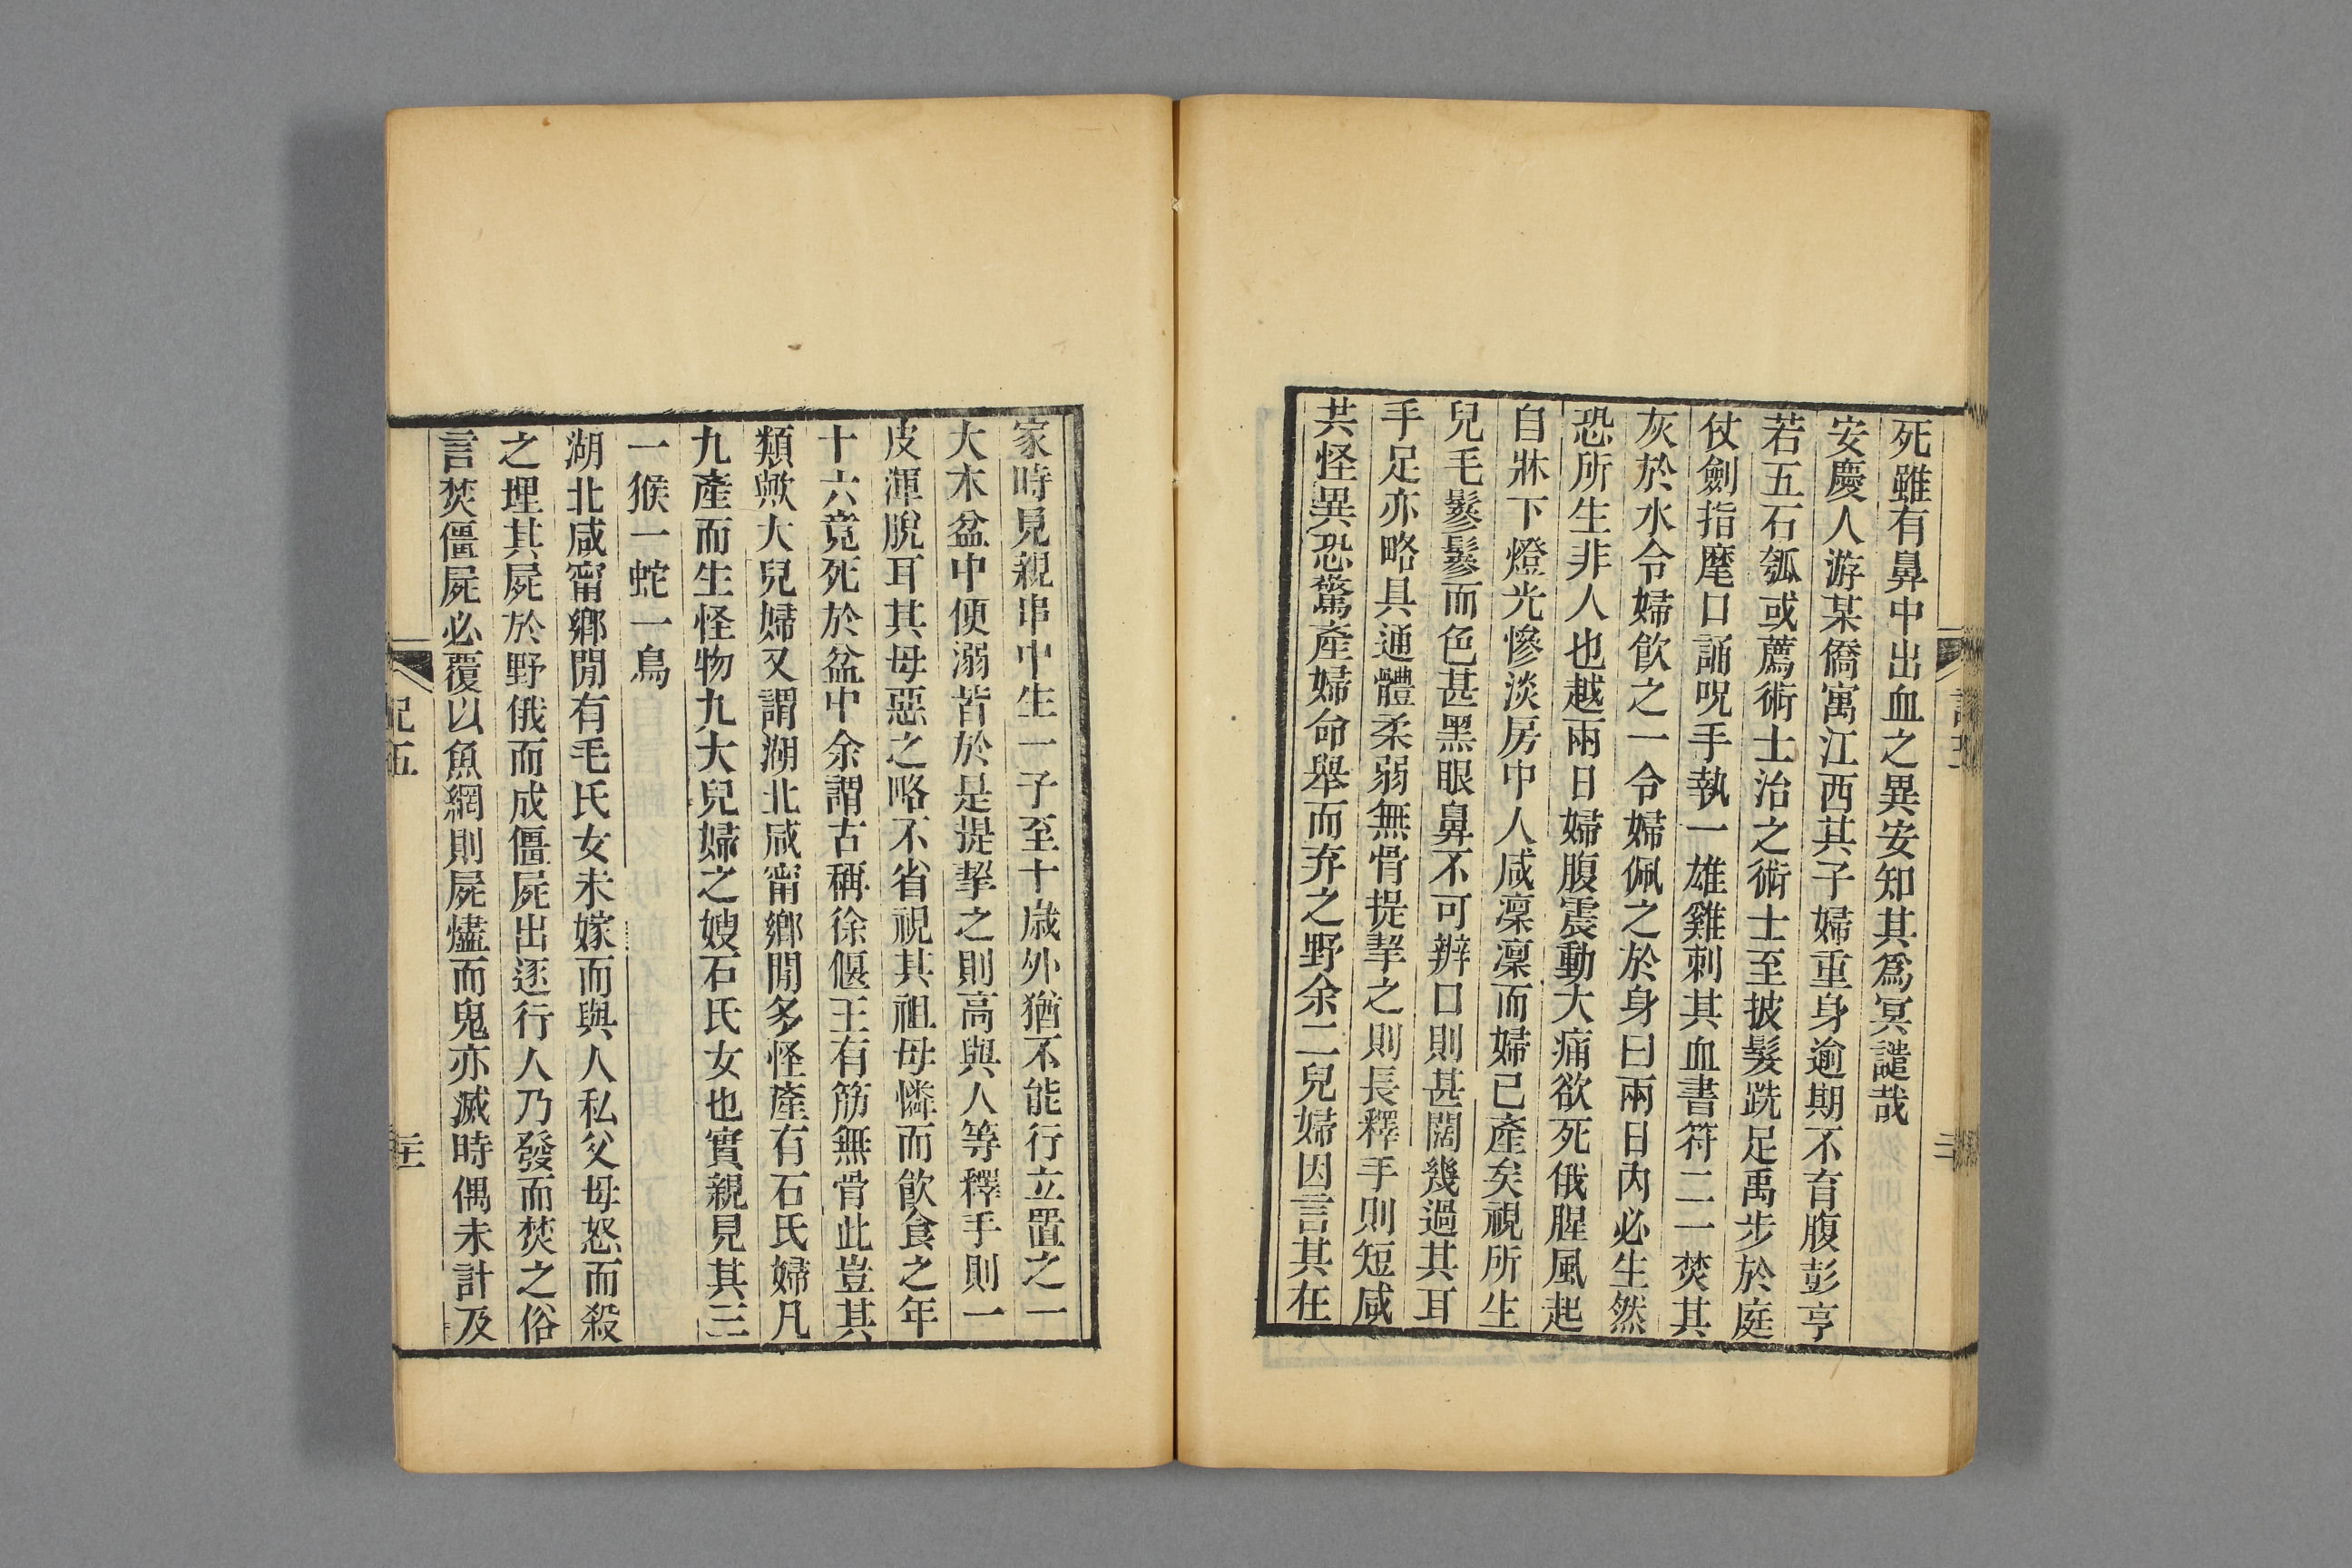 死雖有鼻中出血之異安知其爲冥譴哉
安慶人游某僑寓江西其子婦重身逾期不育腹彭亨
若五石瓠或薦術士治之術士至披髮跣足禹步於庭
仗劍指麾口誦呪手執一雄雞刺其血書符二一焚其
灰於水令婦飮之一令婦佩之於身曰兩日內必生然
恐所生非人也越兩日婦腹震動大痛欲死俄腥風起
自牀下燈光慘淡房中人咸凜凜而婦已產矣視所生
兒毛鬖鬖而色甚黑眼鼻不可辨口則甚闊幾過其耳
手足亦略具通體柔弱無骨提挈之則長釋手則短咸
共怪異恐驚產婦命舉而弃之野余二兒婦因言其在
家時見親串中生一子至十歲外猶不能行立置之一
大木盆中便溺皆於是提挈之則高與人等釋手則一
皮渾脫耳其母惡之略不省視其祖母憐而飮食之年
十六竟死於盆中余謂古稱徐偃王有筋無骨此豈其
類歟大兒婦又謂湖北咸甯鄉閒多怪產有石氏婦凡
九產而生怪物九大兒婦之嫂石氏女也實親見其三
一猴一蛇一鳥
湖北咸甯鄉閒有毛氏女未嫁而與人私父母怒而殺
之埋其屍於野俄而成僵屍出逐行人乃發而焚之俗
言焚僵屍必覆以魚網則屍燼而鬼亦滅時偶未計及
記五